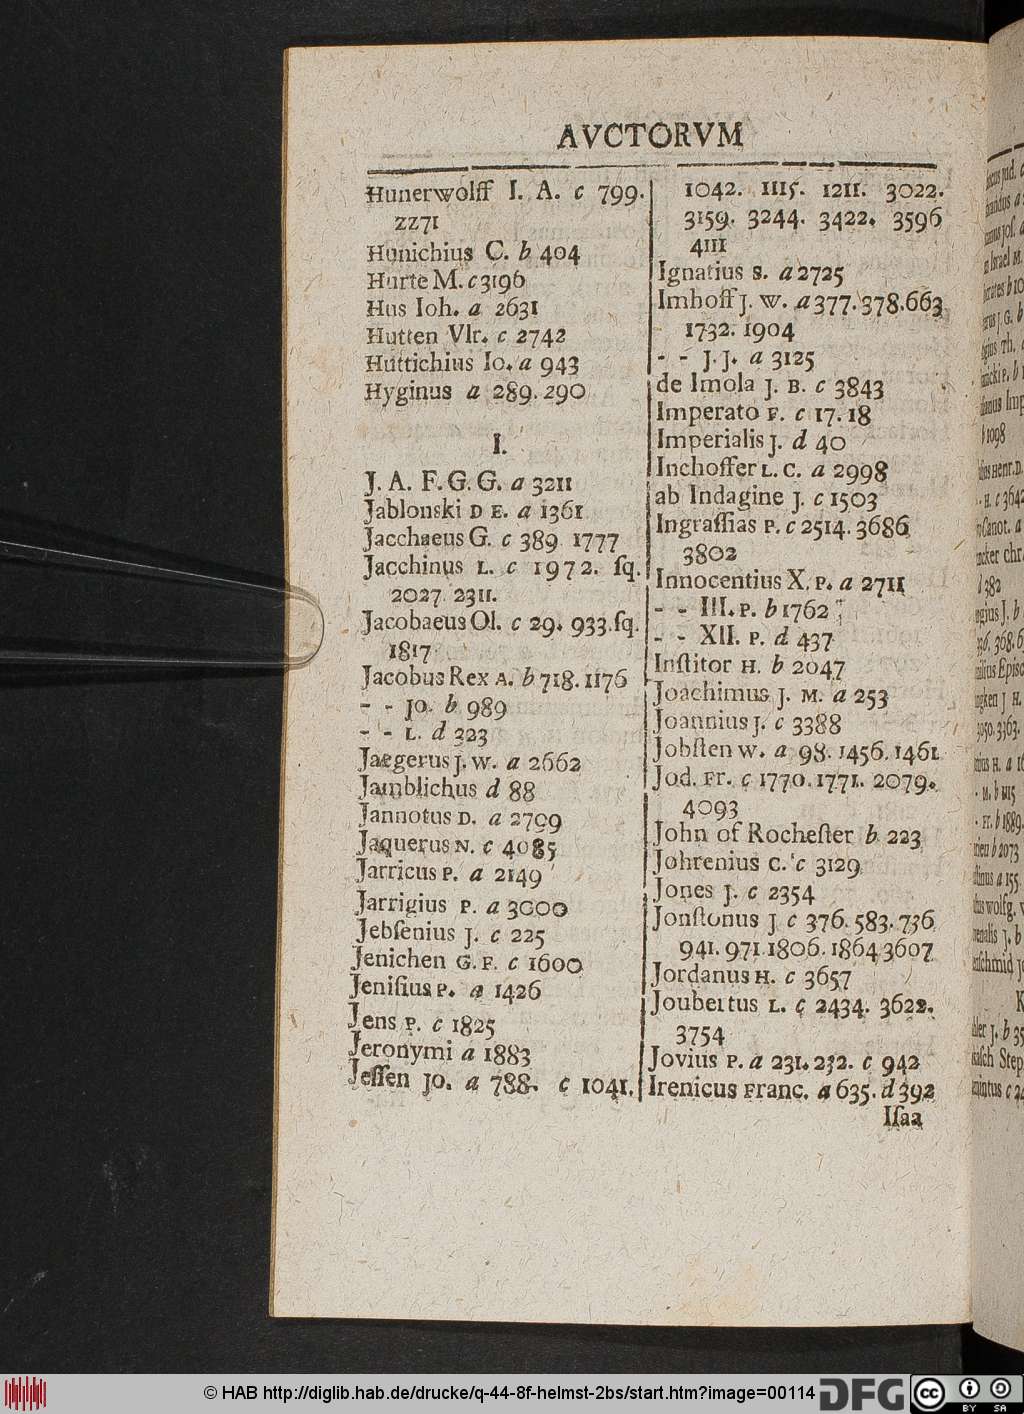 AVCTORVM
Hunerwolff I. A. c 799.
2271
Hunichius C. b 404
Hurte M. c 3196
Hus Ioh. a 2631
Hutten Vlr. c 2742
Huttichius Io. a 943
Hyginus a 289. 290
I.
J. A. F. G. G. a 3211
Jablonski D E. a 1361
Jacchaeus G. c 389 1777
Jacchinus L. c 1972. ſq.
2027. 2311.
Jacobaeus Ol. c 29. 933. ſq.
1817
Jacobus Rex A. b 718. 1176
- - Jo. b 989
- - L. d 323
Jaegerus J. W. a 2662
Jamblichus d 88
Jannotus D. a 2709
Jaquerus N. c 4085
Jarricus P. a 2149
Jarrigius P. a 3000
Jebſenius J. c 225
Jenichen G. F. c 1600
Jeniſius P. a 1426
Jens P. c 1825
Jeronymi a 1883
Jeſſen Jo. a 788. c 1041.
1042. 1115. 1211. 3022.
3159. 3244. 3422. 3596
4111
Ignatius S. a 2725
Imhoff J. W. a 377. 378. 663
1732. 1904
- - J. J. a 3125
de Imola J. B. c 3843
Imperato F. c 17. 18
Imperialis J. d 40
Inchoffer L. C. a 2998
ab Indagine J. c 1503
Ingraſſias P. c 2514. 3686
3802
Innocentius X. P. a 2711
- - III. P. b 1762
- - XII. P. d 437
Inſtitor H. b 2047
Joachimus J. M. a 253
Joannius J. c 3388
Jobſten W. a 98. 1456. 1461
Jod. Fr. c 1770. 1771. 2079.
4093
John of Rocheſter b 223
Johrenius C. c 3129
Jones J. c 2354
Jonſtonus J c 376. 583. 736
941. 971. 1806. 1864 3607
Jordanus H. c 3657
Joubertus L. c 2434. 3622.
3754
Jovius P. a 231. 232. c 942
Irenicus Franc. a 635. d 392
Iſaa
© HAB http://diglib.hab.de/drucke/q-44-8f-helmst-2bs/start.htm?image=00114
DFG
cc BY SA